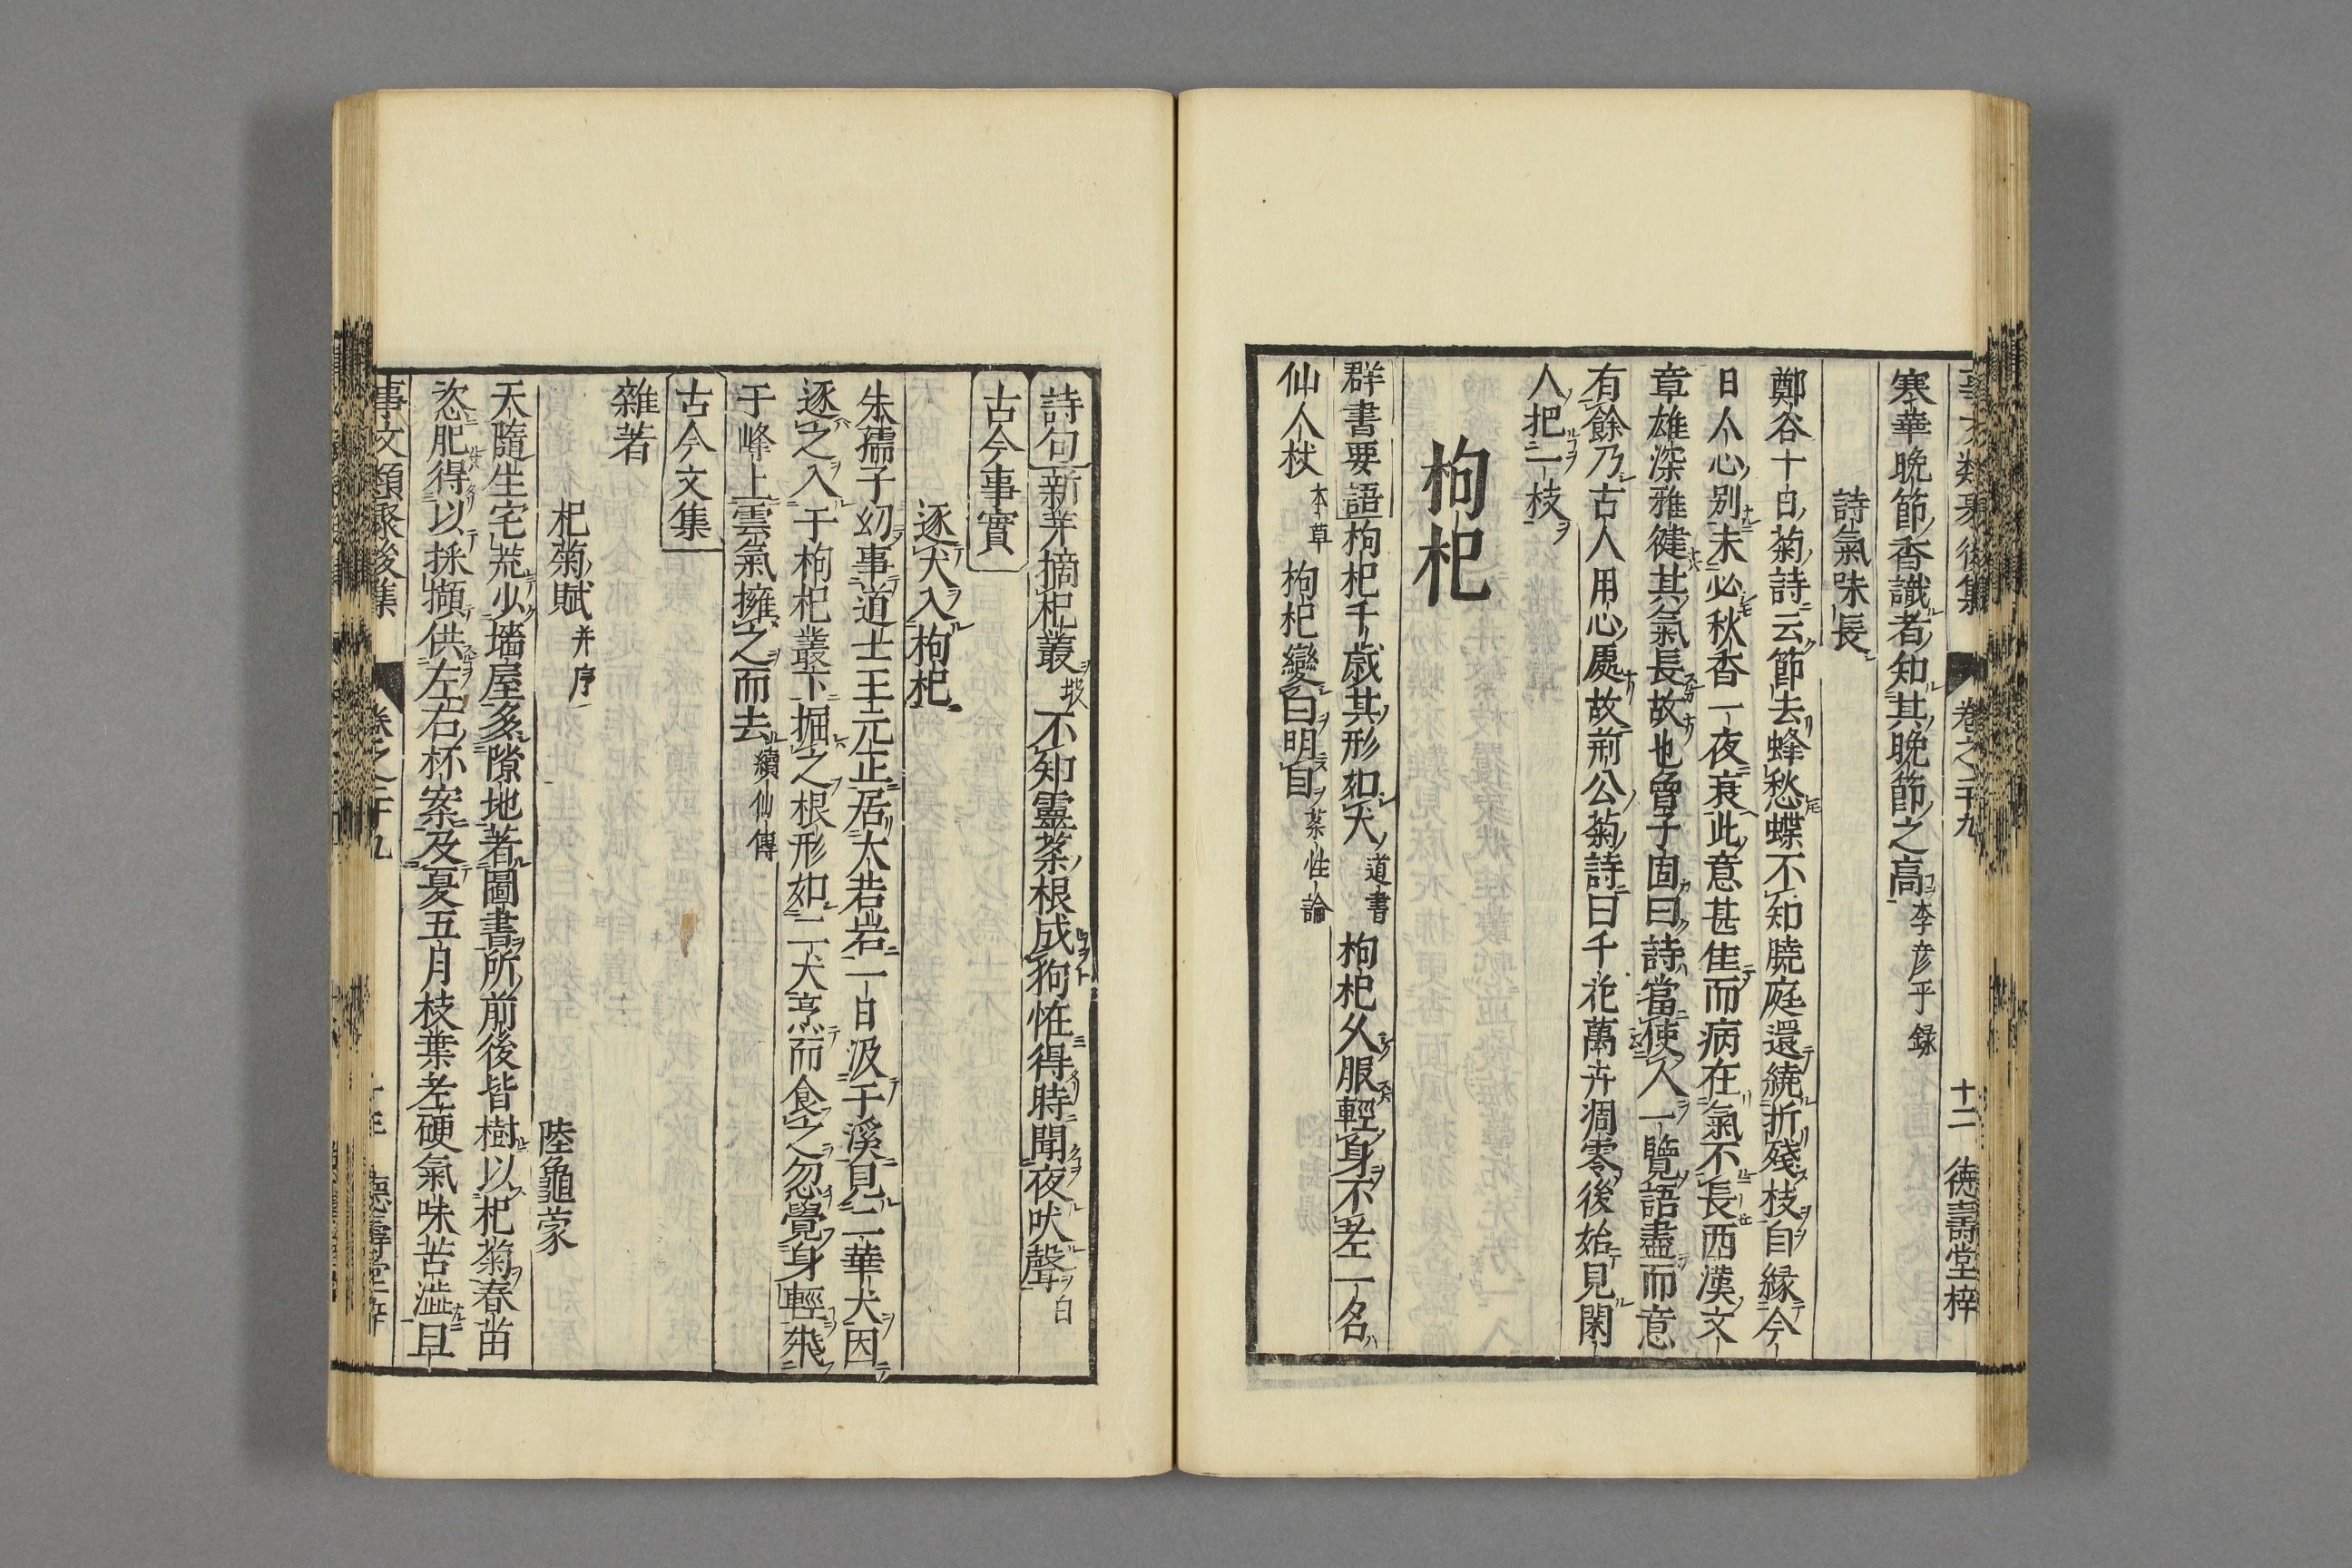 事文類聚後集 卷之二十九 十二 德壽堂梓
寒華晩節香識者知其晩節之高 李彦平錄
詩氣味長
鄭谷十日菊詩云節去蜂愁蝶不知曉庭還繞折殘枝自緣今
日人心别未必秋香一夜衰此意甚佳而病在氣不長西漢文
章雄深雅健其氣長故也曾子固曰詩當使人一覽語盡而意
有餘乃古人用心處故荊公菊詩曰千花萬卉凋零後始見閑
人把一枝
枸杞
群書要語 枸杞千歲其形如犬 道書 枸杞久服輕身不老一名
仙人杖 本草 枸杞變白明目 藥性論
詩句 新芽摘杞叢 坡 不知靈藥根成狗恠得時聞夜吠聲 白
古今事實
逐犬入枸杞
朱孺子幼事道士王元正居大若岩一日汲于溪見二華犬因
逐之入于枸杞叢下掘之根形如二犬烹而食之忽覺身輕飛
于峰上雲氣擁之而去 續仙傳
古今文集
雜著
杞菊賦 并序 陸龜蒙
天隨生宅荒少墻屋多隙地著圖書所前後皆樹以杞菊春苗
恣肥得以採擷供左右杯案及夏五月枝葉老硬氣味苦澁且
事文類聚後集 卷之二十九 德壽堂梓